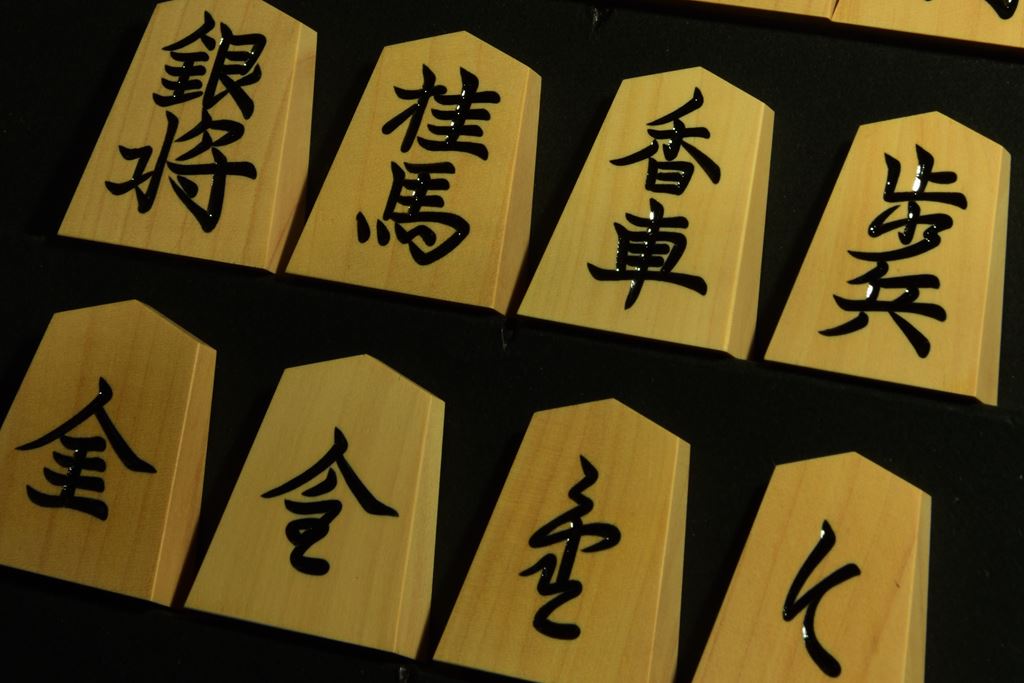 銀将
桂馬
香車
歩兵
金
全
と